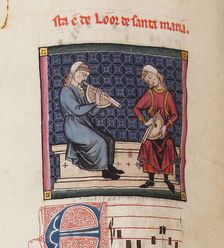 sta é de Loor de santa maria.
E